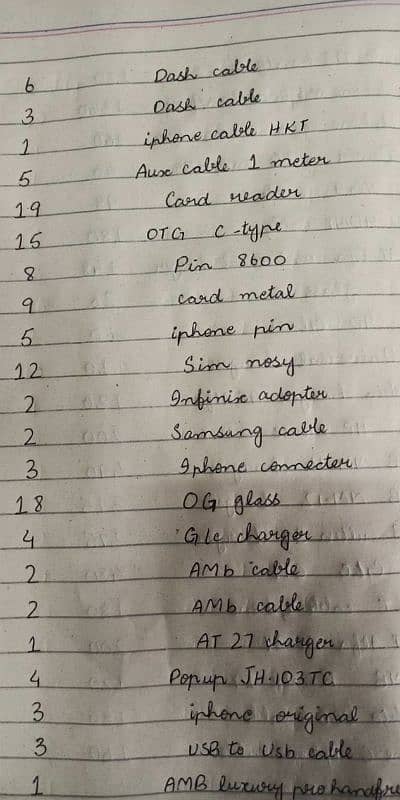 6 Dash cable
3 Dash cable
1 iphone cable HKT
5 Aux cable 1 meter
19 Card reader
15 OTG C-type
8 Pin 8600
9 card metal
5 iphone pin
12 Sim nosy
2 Infinix adopter
2 Samsung cable
3 Iphone connecter
18 OG glass
4 Glc charger
2 AMb cable
2 AMb cable
1 AT 27 charger
4 Popup JH-103TC
3 iphone original
3 USB to Usb cable
1 AMB luxury pro handfre